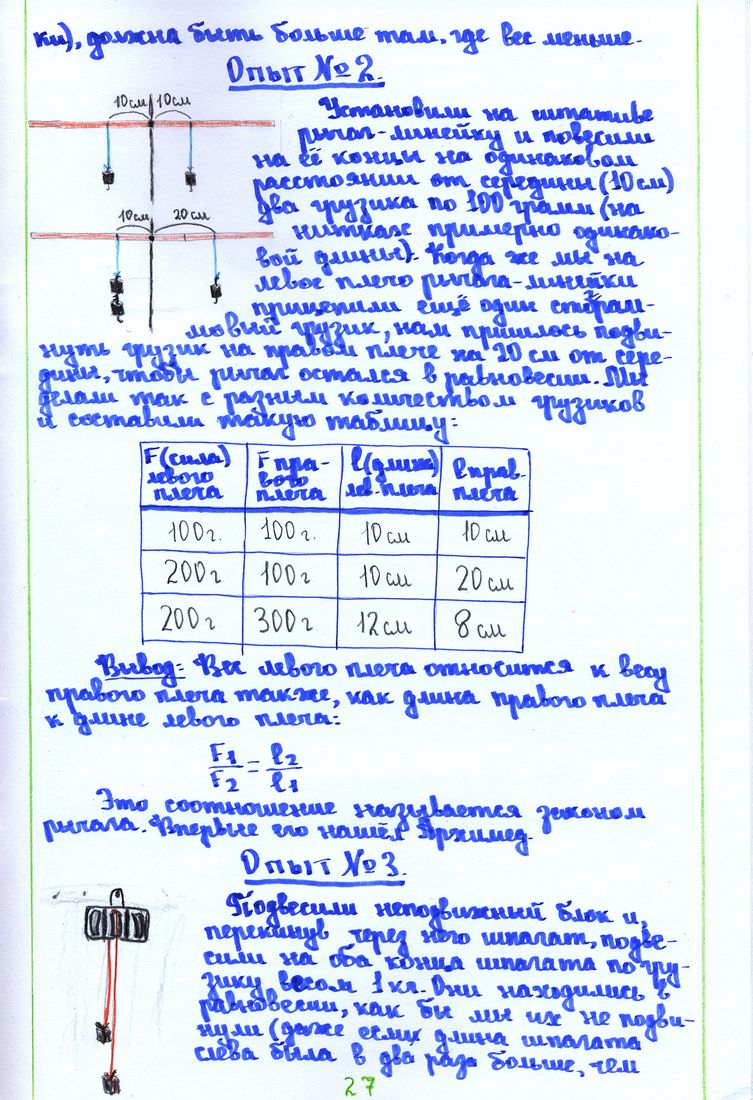 ки), должна быть больше там, где вес меньше.
Опыт №2.
10см 10см
10см 20см
Установили на штативе
рычаг-линейку и повесили
на её концы на одинаковом
расстоянии от середины (10см)
два грузика по 100 грамм (на
нитках примерно одинако-
вой длины). Когда же мы на
левое плечо рычага-линейки
прицепили ещё один стограм-
мовый грузик, нам пришлось подви-
нуть грузик на правом плече на 20 см от сере-
дины, чтобы рычаг остался в равновесии. Мы
делали так с разным количеством грузиков
и составили такую таблицу:
F(сила) левого плеча | F пра-вого плеча | l(длина) лев. плеча | l прав. плеча
100г. | 100г. | 10см | 10см
200г | 100г | 10см | 20см
200г | 300г | 12см | 8см
Вывод: Вес левого плеча относится к весу
правого плеча так же, как длина правого плеча
к длине левого плеча:
F1/F2 = l2/l1
Это соотношение называется законом
рычага. Впервые его нашёл Архимед.
Опыт №3.
Подвесили неподвижный блок и,
перекинув через него шпагат, подве-
сили на оба конца шпагата по гру-
зику весом 1кг. Они находились в
равновесии, как бы мы их не подви-
нули (даже если длина шпагата
слева была в два раза больше, чем
27